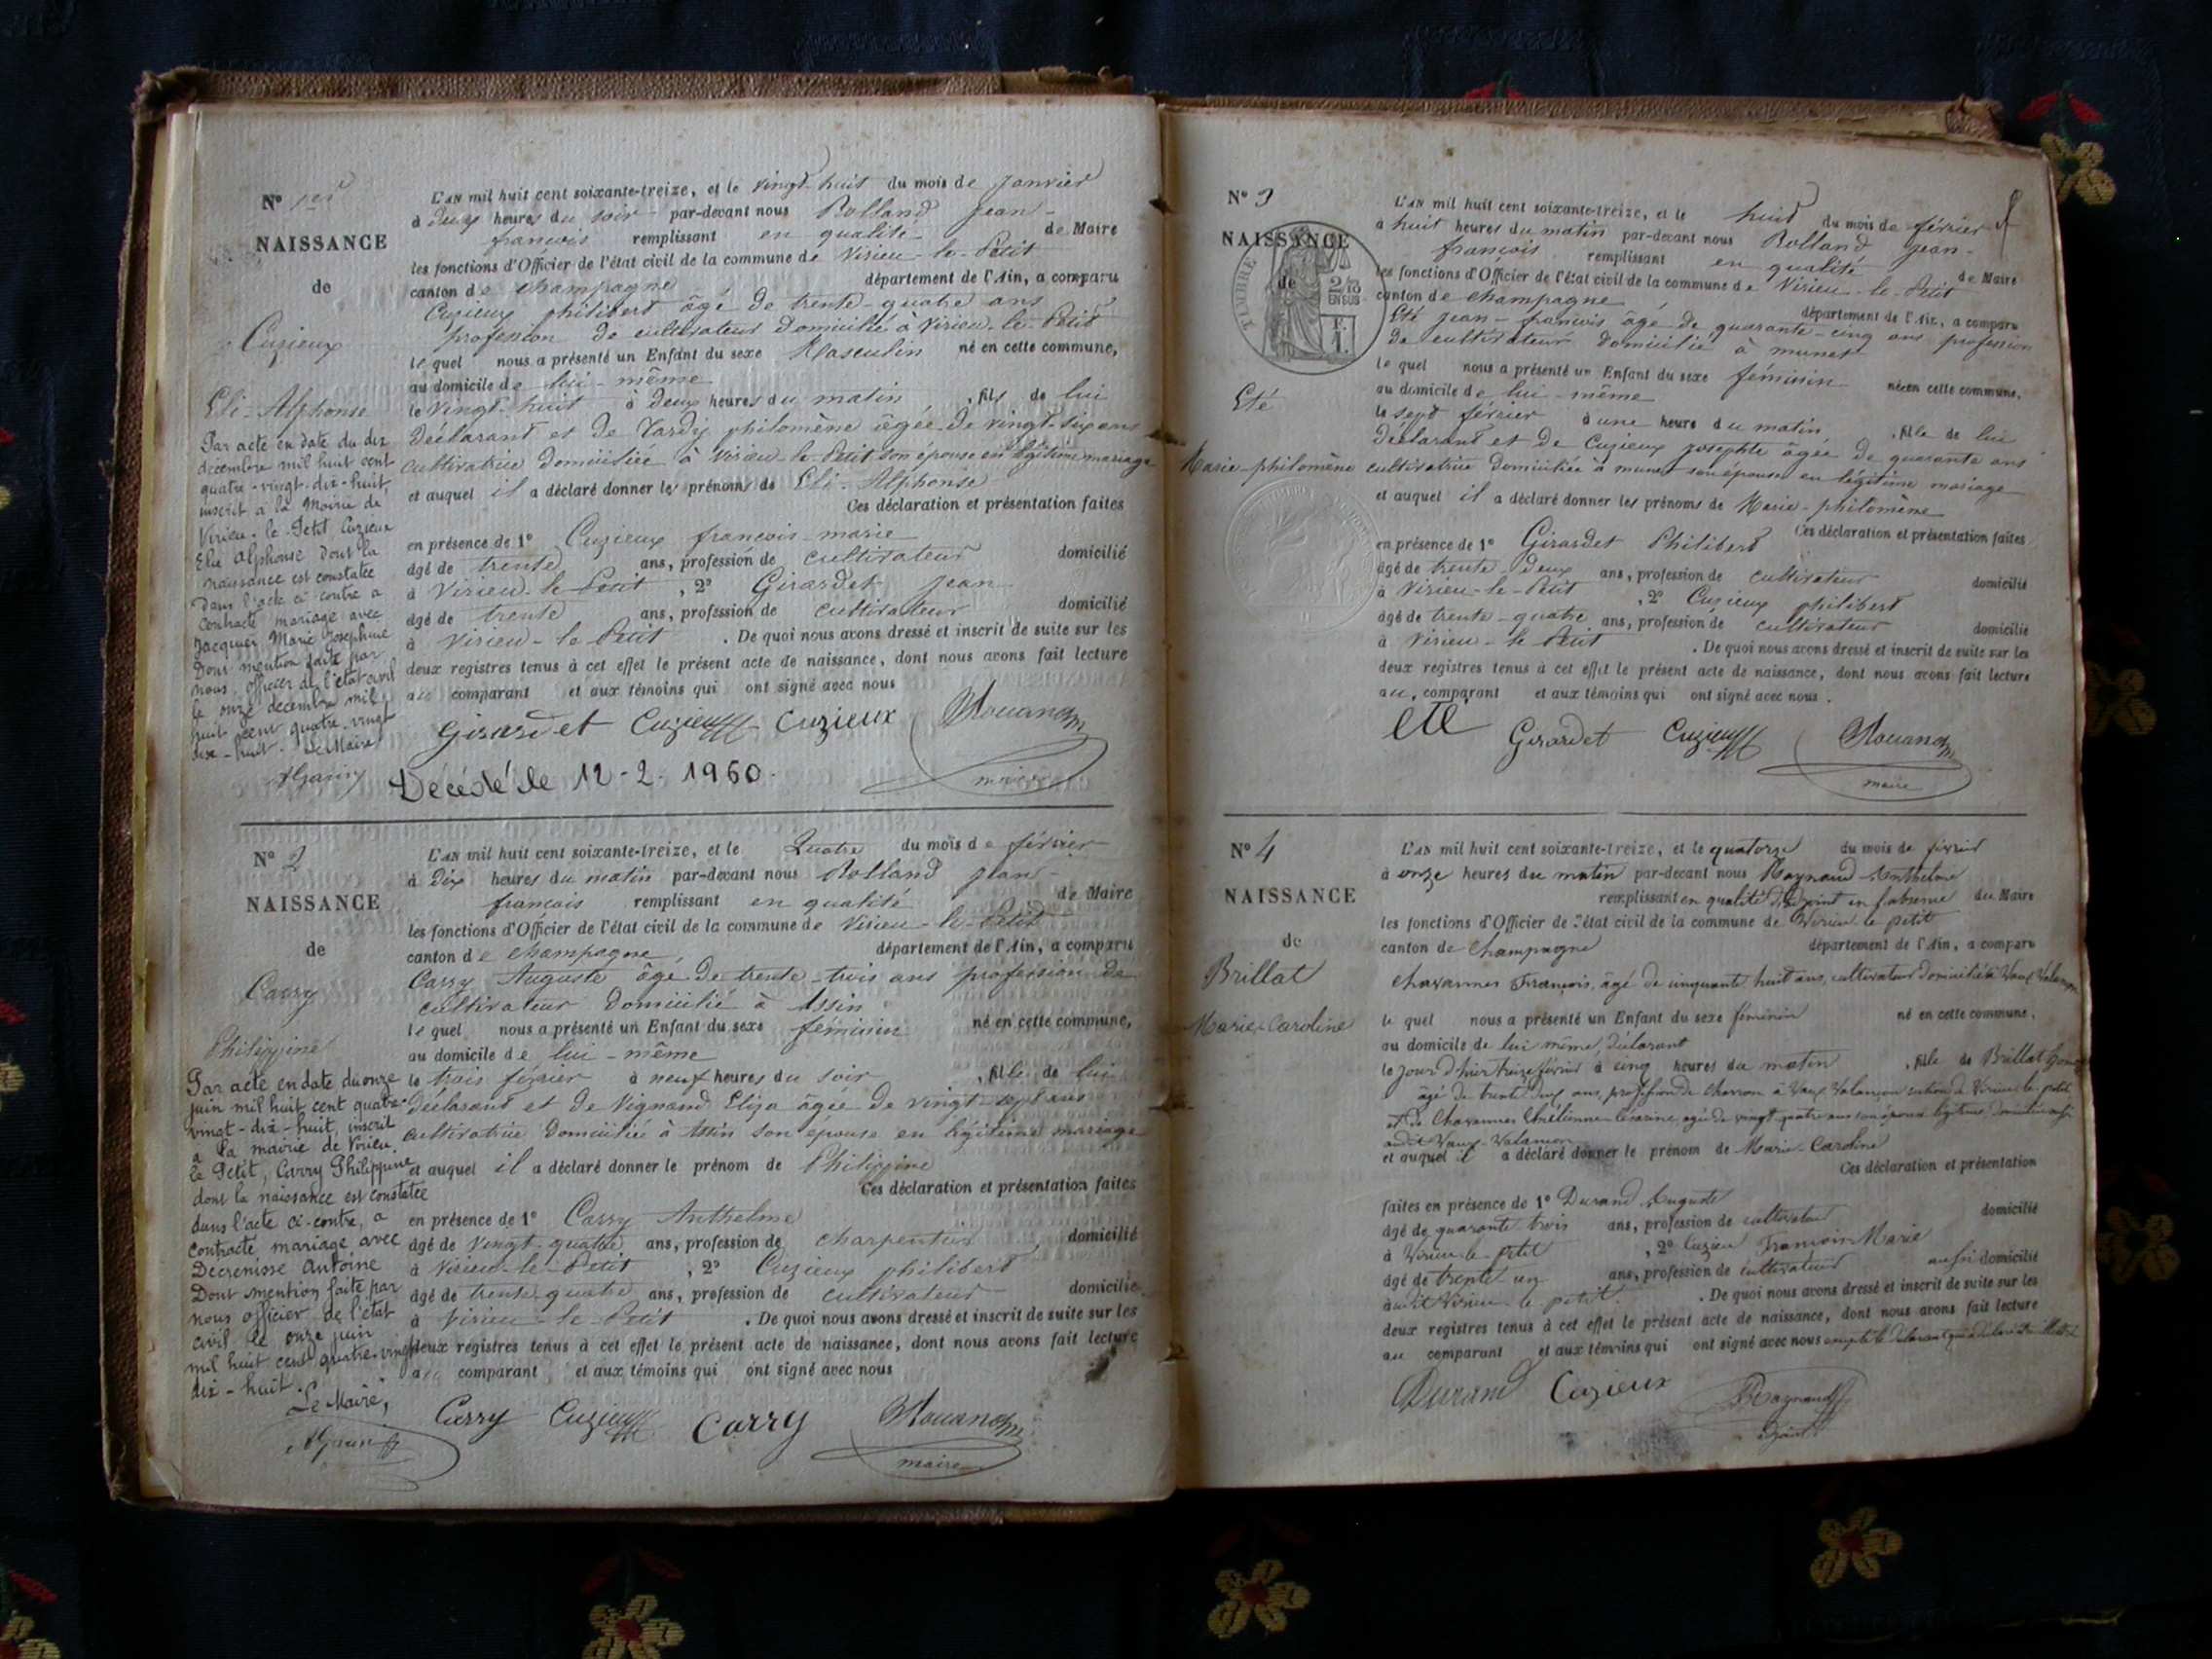 N° 1er
NAISSANCE
de
Cuzieux
Eli-Alphonse
Par acte en date du dix
décembre mil huit cent
quatre-vingt-dix-huit,
inscrit à la Mairie de
Virieu-le-Petit, Cuzieux
Elie Alphonse dont la
naissance est constatée
dans l'acte ci-contre a
contracté mariage avec
Jacquei Marie Josephine
Dont mention faite par
nous, officier de l'état civil
le onze décembre mil
huit cent quatre-vingt
dix-huit. Le Maire
L'AN mil huit cent soixante-treize, et le vingt-huit du mois de Janvier
à deux heures du soir par-devant nous Rolland jean-
francois remplissant en qualité de Maire
les fonctions d'Officier de l'état civil de la commune de Virieu-le-Petit
canton de champagne département de l'Ain, a comparu
Cuzieux philibert âgé de trente-quatre ans
profession de cultivateur domicilié à Virieu-le-Petit
lequel nous a présenté un Enfant du sexe Masculin né en cette commune,
au domicile de lui-même
le vingt-huit à deux heures du matin, fils de lui
déclarant et de Tardy philomène âgée de vingt-six ans
cultivatrice domiciliée à Virieu-le-Petit son épouse en légitime mariage
et auquel il a déclaré donner les prénoms de Eli-Alphonse
Ces déclaration et présentation faites
en présence de 1° Cuzieux francois-marie
âgé de trente ans, profession de cultivateur domicilié
à Virieu-le-Petit, 2° Girardet jean
âgé de trente ans, profession de cultivateur domicilié
à Virieu-le-Petit. De quoi nous avons dressé et inscrit de suite sur les
deux registres tenus à cet effet le présent acte de naissance, dont nous avons fait lecture
au comparant et aux témoins qui ont signé avec nous
Girardet Cuzieux Cuzieux
maire
Décédé le 12-2-1960.
N° 2
NAISSANCE
de
Carry
Philippine
Par acte en date du onze
juin mil huit cent quatre-
vingt-dix-huit, inscrit
à la mairie de Virieu
le Petit, Carry Philippine
dont la naissance est constatée
dans l'acte ci-contre, a
contracté mariage avec
Decrenisse Antoine
Dont mention faite par
nous officier de l'état
civil le onze juin
mil huit cent quatre-vingt
dix-huit.
Le Maire,
L'AN mil huit cent soixante-treize, et le Quatre du mois de février
à dix heures du matin par-devant nous Rolland jean-
francois remplissant en qualité de Maire
les fonctions d'Officier de l'état civil de la commune de Virieu-le-Petit
canton de champagne département de l'Ain, a comparu
Carry Auguste âgé de trente-trois ans profession de
cultivateur domicilié à Assin
lequel nous a présenté un Enfant du sexe féminin né en cette commune,
au domicile de lui-même
le trois février à neuf heures du soir, fille de lui
déclarant et de Vignand Eliza âgée de vingt-sept ans
cultivatrice domiciliée à Assin son epouse en légitime mariage
et auquel il a déclaré donner le prénom de Philippine
Ces déclaration et présentation faites
en présence de 1° Carry Anthelme
âgé de vingt-quatre ans, profession de charpentier domicilié
à Virieu-le-Petit, 2° Cuzieux philibert
âgé de trente-quatre ans, profession de cultivateur domicilié
à Virieu-le-Petit. De quoi nous avons dressé et inscrit de suite sur les
deux registres tenus à cet effet le présent acte de naissance, dont nous avons fait lecture
au comparant et aux témoins qui ont signé avec nous
Carry Cuzieux Carry
maire
N° 3
NAISSANCE
de
TIMBRE
2/10 EN SUS
F. 1.
Eté
Marie-philomène
L'AN mil huit cent soixante-treize, et le huit du mois de février
à huit heures du matin par-devant nous Rolland jean-
françois remplissant en qualité de Maire
les fonctions d'Officier de l'état civil de la commune de Virieu-le-Petit
canton de champagne département de l'Ain, a comparu
Eté jean-francois âgé de quarante-cinq ans profession
de cultivateur domicilié à munet
lequel nous a présenté un Enfant du sexe féminin née en cette commune,
au domicile de lui-même
le sept février à une heure du matin, fille de lui
déclarant et de Cuzieux josephte âgée de quarante ans
cultivatrice domiciliée à munet son épouse en légitime mariage
et auquel il a déclaré donner les prénoms de Marie-philomène
Ces déclaration et présentation faites
en présence de 1° Girardet Philibert
âgé de trente-deux ans, profession de cultivateur domicilié
à Virieu-le-Petit, 2° Cuzieux philibert
âgé de trente-quatre ans, profession de cultivateur domicilié
à Virieu-le-Petit. De quoi nous avons dressé et inscrit de suite sur les
deux registres tenus à cet effet le présent acte de naissance, dont nous avons fait lecture
au comparant et aux témoins qui ont signé avec nous.
Eté Girardet Cuzieux
maire
N° 4
NAISSANCE
de
Brillat
Marie-Caroline
L'AN mil huit cent soixante-treize, et le quatorze du mois de février
à onze heures du matin par-devant nous Raynaud Anthelme
remplissant en qualité d'adjoint en l'absence du Maire
les fonctions d'Officier de l'état civil de la commune de Virieu-le-petit
canton de Champagne département de l'Ain, a comparu
Chavannes François, âgé de cinquante huit ans, cultivateur domicilié à Vaux Valançon
lequel nous a présenté un Enfant du sexe féminin né en cette commune,
au domicile de lui même, déclarant
le jour d'hier treize février à cinq heures du matin, fille de Brillat
âgé de trente deux ans, profession de charron à Vaux Valançon section de Virieu-le-petit
et de Chavannes Césarine, agée de vingt quatre ans son épouse légitime domiciliée aussi
audit Vaux-Valançon
et auquel il a déclaré donner le prénom de Marie-Caroline
Ces déclaration et présentation
faites en présence de 1° Durand Auguste
âgé de quarante trois ans, profession de cultivateur domicilié
à Virieu-le-petit, 2° Cuzieu François Marie
âgé de trente un ans, profession de cultivateur aussi domicilié
audit Virieu-le petit. De quoi nous avons dressé et inscrit de suite sur les
deux registres tenus à cet effet le présent acte de naissance, dont nous avons fait lecture
au comparant et aux témoins qui ont signé avec nous excepté le déclarant qui a déclaré être illettré
Durand Cuzieux Raynaud
adjoint